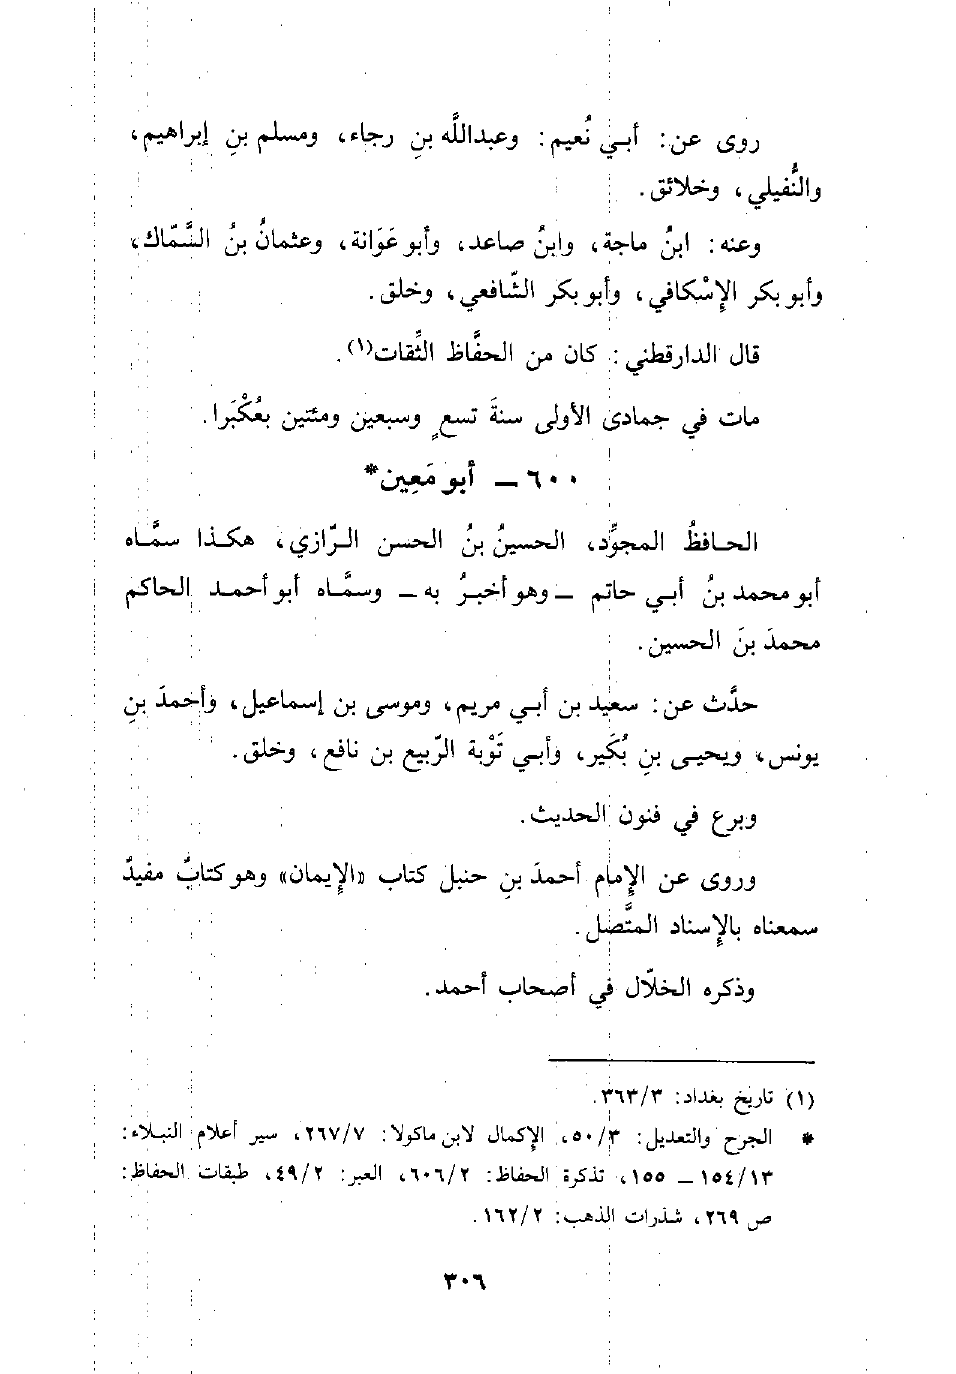 روى عن: أبي نُعيم: وعبدالله بنِ رجاء، ومسلم بنِ إبراهيم،
والنُّفيلي، وخلائق.
وعنه: ابنُ ماجة، وابنُ صاعد، وأبو عَوَانة، وعثمانُ بنُ السَّمّاك،
وأبو بكر الإِسْكافي، وأبو بكر الشّافعي، وخلق.
قال الدارقطني: كان من الحفَّاظ الثِّقات(١).
مات في جمادى الأولى سنةَ تسعٍ وسبعين ومئتين بعُكْبَرا.
٦٠٠ ــ أبو مَعِين*
الحافظُ المجوِّد، الحسينُ بنُ الحسن الرّازي، هكذا سمَّاه
أبو محمد بنُ أبي حاتم ــ وهو أخبرُ به ــ وسمَّاه أبو أحمد الحاكم
محمدَ بنَ الحسين.
حدَّث عن: سعيد بن أبي مريم، وموسى بن إسماعيل، وأحمدَ بنِ
يونس، ويحيى بنِ بُكَير، وأبي تَوْبة الرّبيع بن نافع، وخلق.
وبرع في فنون الحديث.
وروى عن الإِمام أحمدَ بنِ حنبل كتاب «الإِيمان» وهو كتابٌ مفيدٌ
سمعناه بالإِسناد المتَّصل.
وذكره الخلّال في أصحاب أحمد.
(١) تاريخ بغداد: ٣٦٣/٣.
* الجرح والتعديل: ٥٠/٣، الإكمال لابن ماكولا: ٢٦٧/٧، سير أعلام النبلاء:
١٥٤/١٣ ــ ١٥٥، تذكرة الحفاظ: ٦٠٦/٢، العبر: ٤٩/٢، طبقات الحفاظ:
ص ٢٦٩، شذرات الذهب: ١٦٢/٢.
٣٠٦